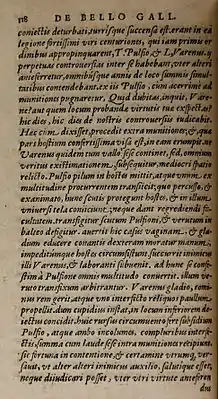 118 DE BELLO GALL.
coniectis deturbati, turrisque succensa est. erant in ea
legione fortissimi viri centuriones, qui iam primis or
dinibus appropinquarent, T. Pulfio, & L. Varenus. hi
perpetuas controuersias inter se habebant, vter alteri
anteferretur, omnibusque annis de loco summis simul-
tatibus contendebant. ex iis Pulfio, cum acerrime ad
munitiones pugnaretur, Quid dubitas, inquit, Vare-
ne? aut quem locum probandæ virtutis tuæ expectas?
hic dies, hic dies de nostris controuersiis iudicabit.
Hæc cum dixisset, procedit extra munitiones, & qua
pars hostium confertissima visa est, in eam erumpit. ne
Varenus quidem tum vallo sese continet, sed, omnium
veritus existimationem, subsequitur. mediocri spatio
relicto, Pulfio pilum in hostes mittit, atque vnum ex
multitudine procurrentem transiicit, quo percusso, &
exanimato, hunc scutis protegunt hostes, & in illum
vniuersi tela coniiciunt, neque dant regrediendi fa-
cultatem. transfigitur scutum Pulfioni, & verutum in
balteo defigitur. auertit hic casus vaginam, & gla-
dium educere conantis dexteram moratur manum,
impeditumque hostes circumsistunt. succurrit inimicus
illi Varenus, & laboranti subuenit. ad hunc se confe-
stim a Pulfione omnis multitudo conuertit. illum ve-
ruto transfixum arbitrantur. Varenus gladio, comi-
nus rem gerit, atque vno interfecto reliquos paullum
propellit. dum cupidius instat, in locum inferiorem de-
iectus concidit. huic rursus circumuento fert subsidium
Pulfio, atque ambo incolumes, compluribus interfe-
ctis, summa cum laude sese intra munitiones recipiunt.
sic fortuna in contentione, & certamine vtrumque ver-
sauit, vt alter alteri inimicus auxilio, salutique esset,
neque diiudicari posset, vter vtri virtute anteferen
dus